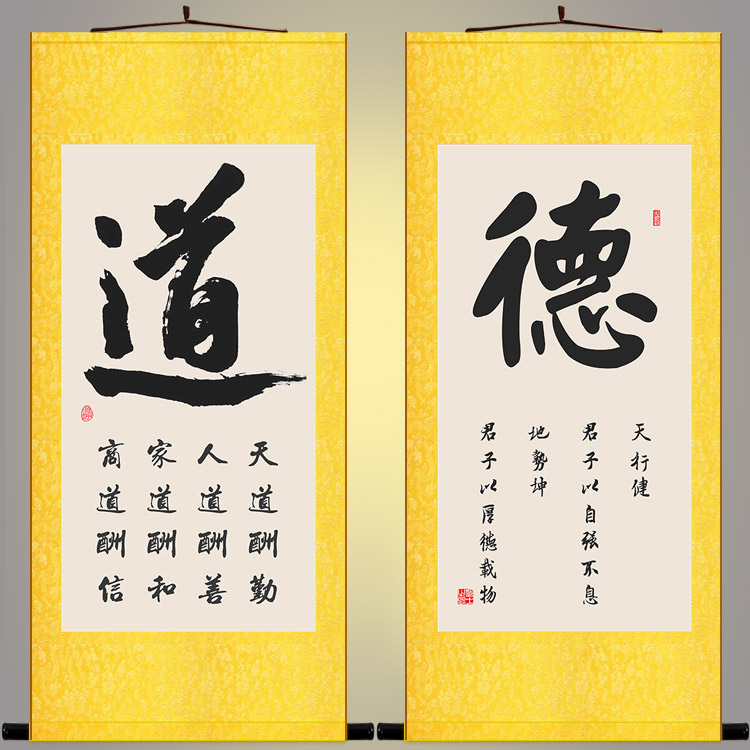 道
天道酬勤
人道酬善
家道酬和
商道酬信
德
天行健
君子以自强不息
地势坤
君子以厚德载物